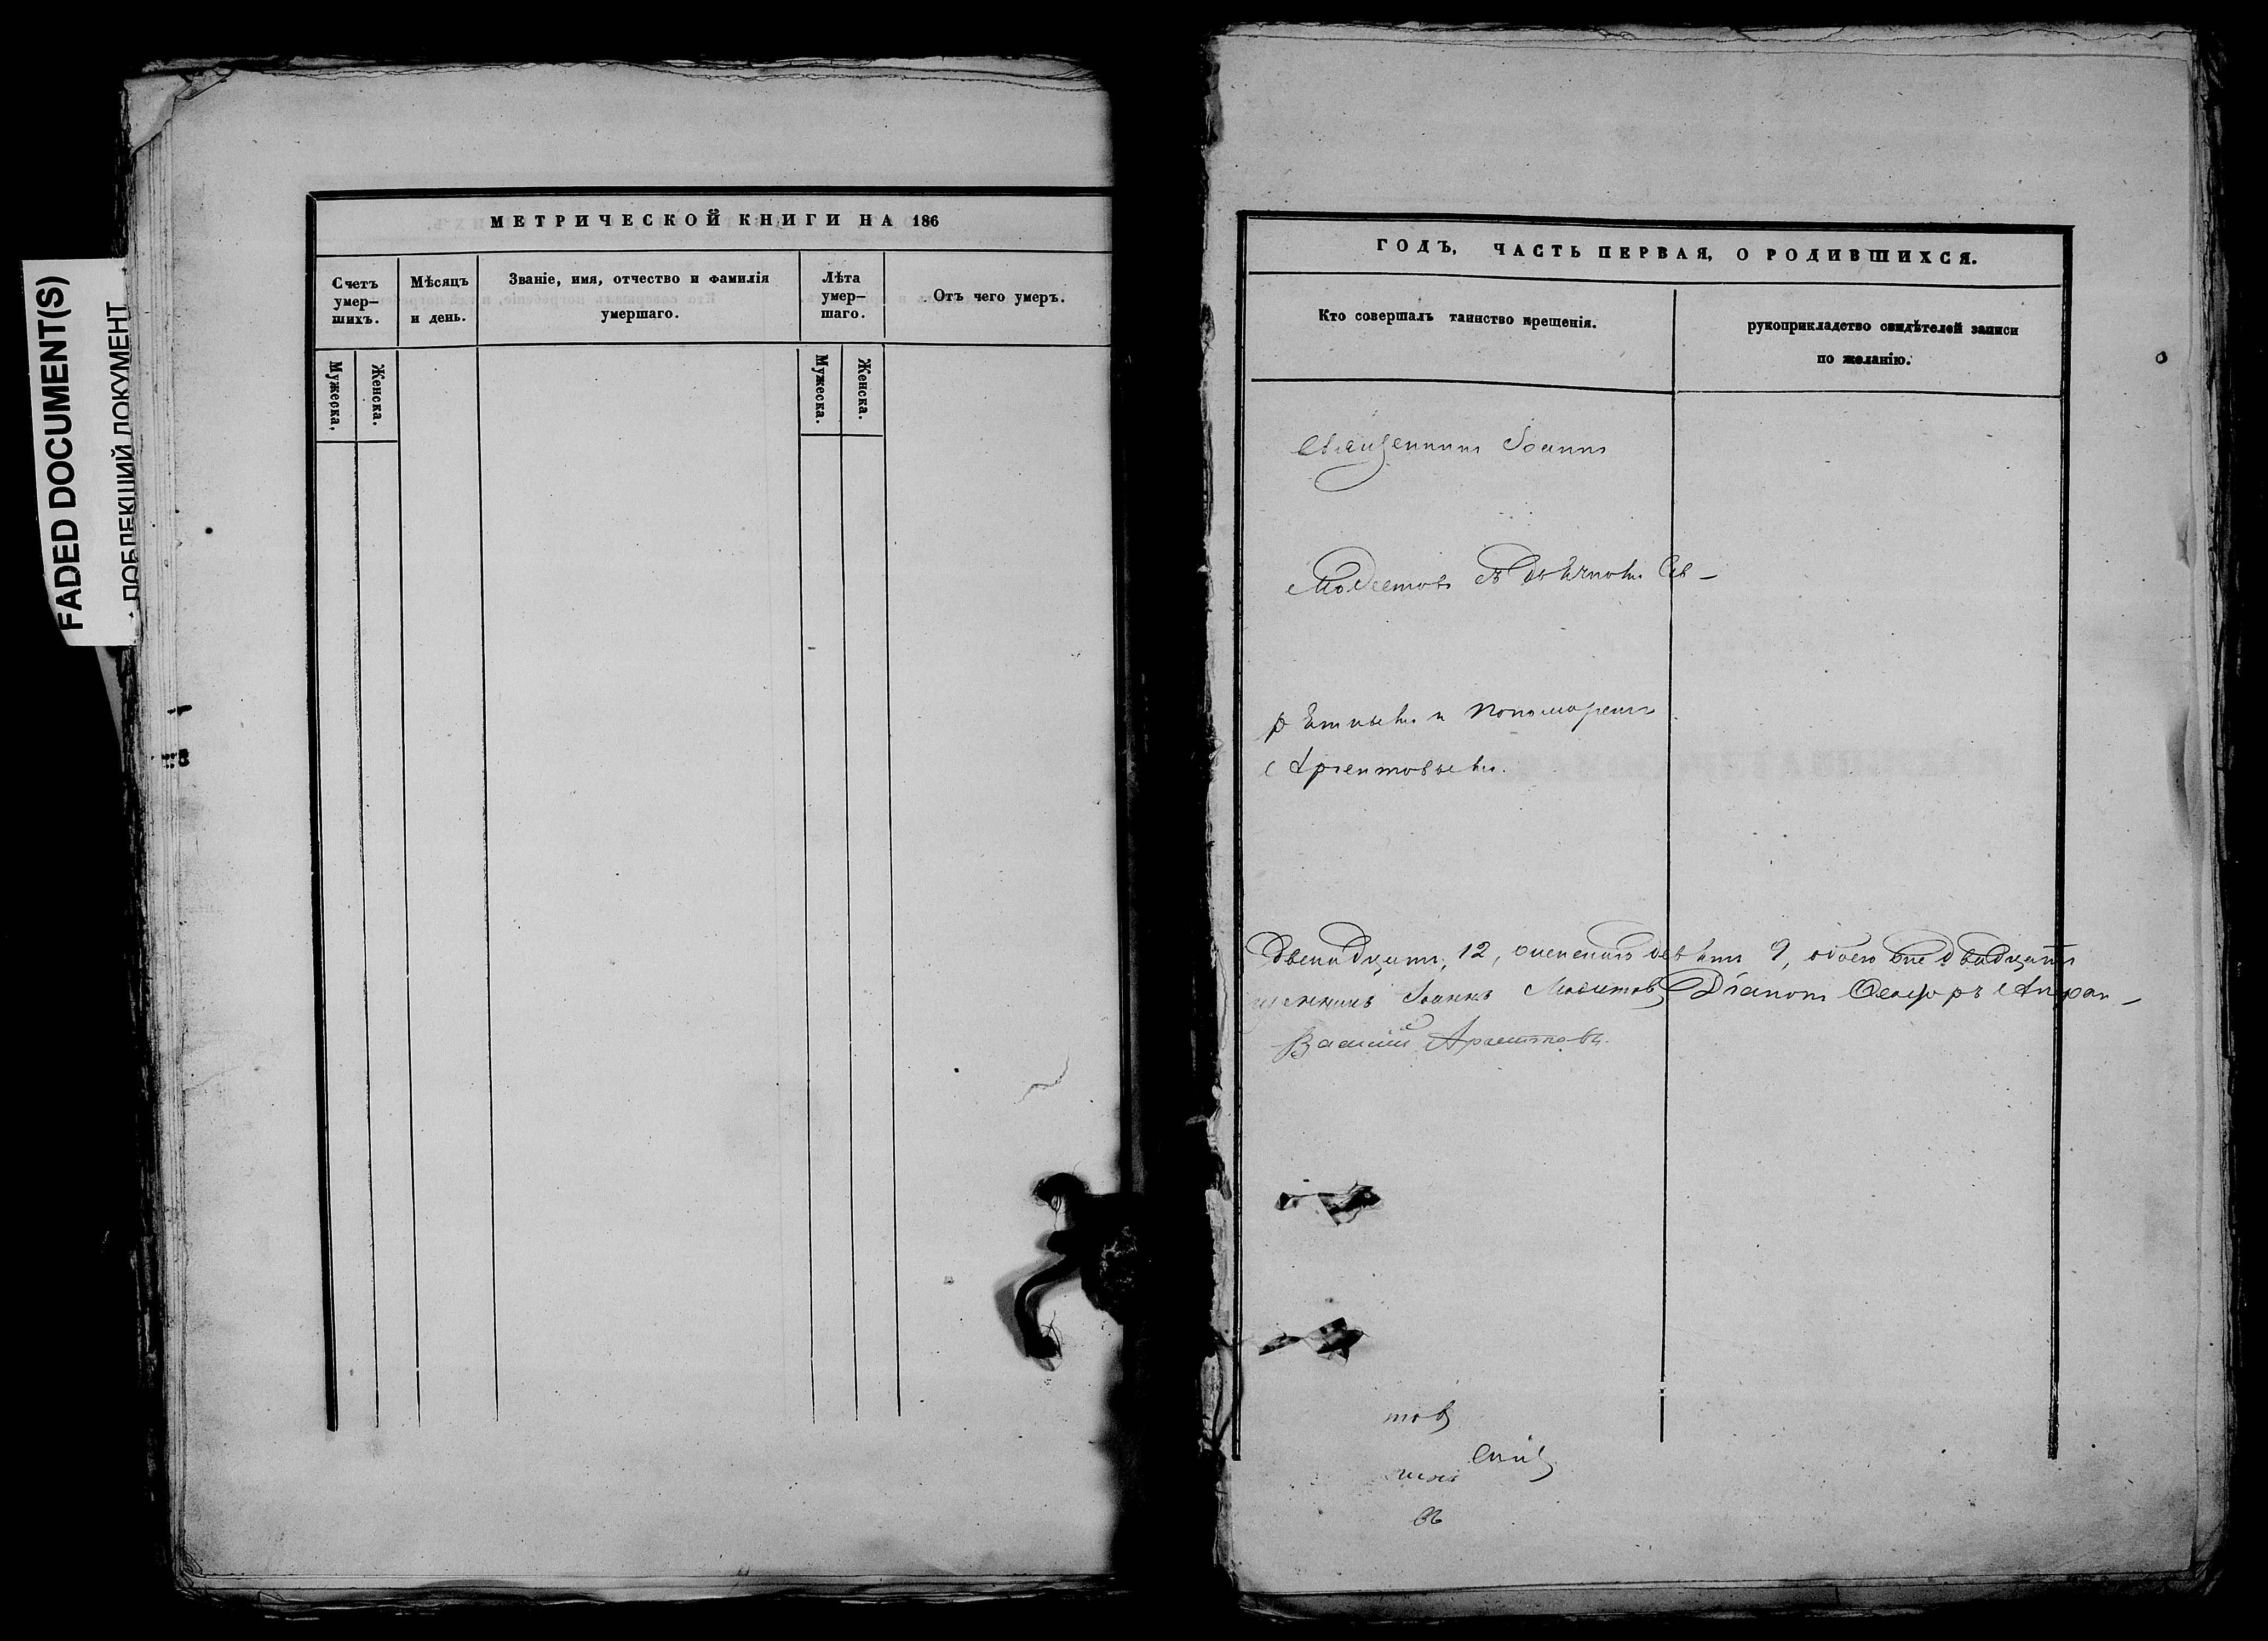 FADED DOCUMENT(S)
ПОБЛЕКШИЙ ДОКУМЕНТ
МЕТРИЧЕСКОЙ КНИГИ НА 186
Счетъ умер-
шихъ.
Мѣсяцъ
и день.
Званіе, имя, отчество и фамилія
умершаго.
Лѣта
умер-
шаго.
Отъ чего умеръ.
Мужеска.
Женска.
Мужеска.
Женска.
ГОДЪ, ЧАСТЬ ПЕРВАЯ, О РОДИВШИХСЯ.
Кто совершалъ таинство крещенія.
рукоприкладство свидѣтелей записи
по желанію.
Священникъ Іоаннъ
Модестовъ съ
и пономаремъ
Аргентовымъ.
12, женска 9, обоего
Іоаннъ Модестовъ Діаконъ
Василій Аргентовъ.
товъ